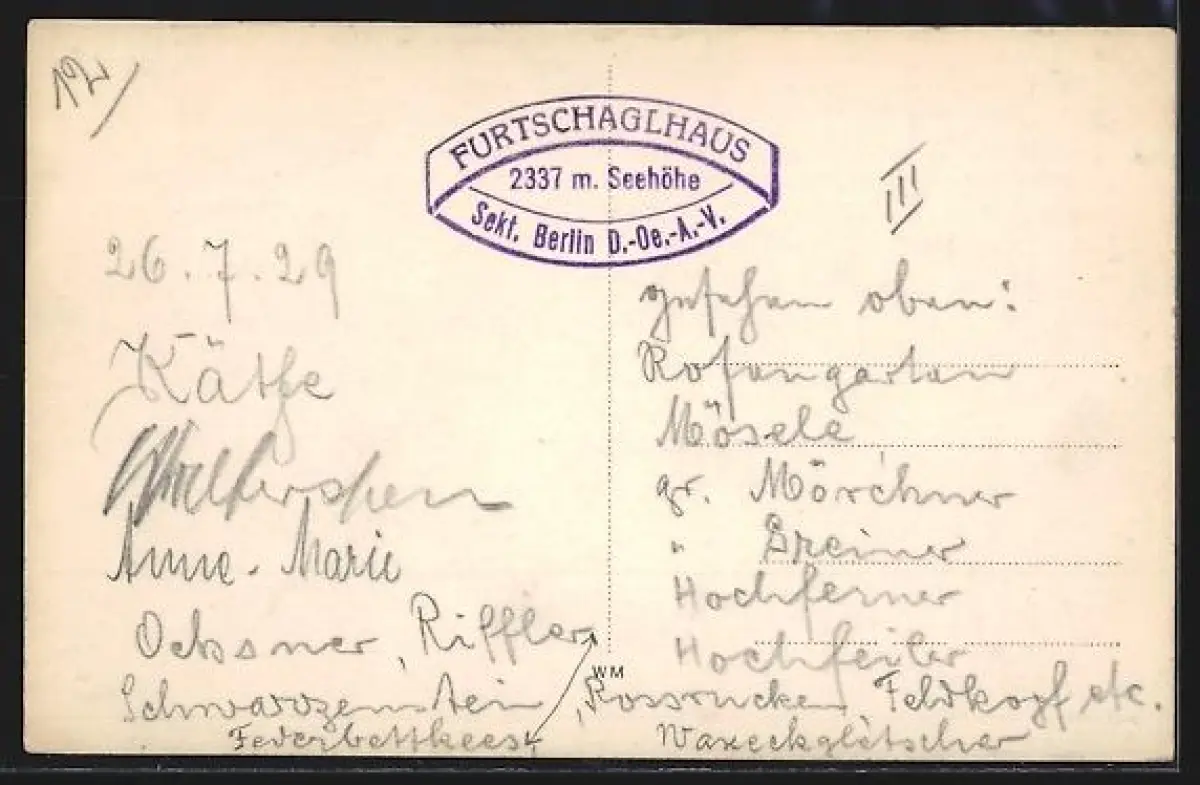 12
FURTSCHAGLHAUS
2337 m. Seehöhe
Sekt. Berlin D.-Oe.-A.-V.
III
26.7.29
Käthe
Anne-Marie
Ochsner, Riffler
Schwarzenstein, Rossrucken Feldkopf etc.
Federbettkees
gesehen oben:
Rosengarten
Mösele
gr. Mörchner
" Greiner
Hochferner
Hochfeiler
WM
Waxeckgletscher